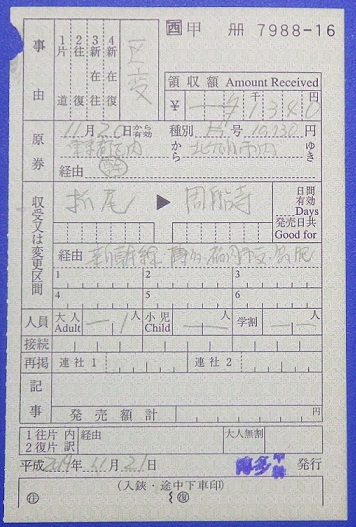 西 甲 冊 7988-16
事由
1片道
2往復
3新在往
4新在復
区変
領収額 Amount Received
¥ 千 円
1340
原券
11月20日から有効 種別 号 10,730円
京都市内 から 北九州市内 ゆき
経由
収受又は変更区間
折尾 ▶ 周船寺
日間有効 Days
発売日共 Good for
経由 新幹線 博多
1 2 3
4 5 6
人員 大人 Adult 1人 小児 Child 人 学割 人
接続
再掲 連社1 連社2
記事
発売額計 円
1往片 2復片 内訳 経由 大人無割
平成 年11月21日 博多 発行
(入鋏・途中下車印)